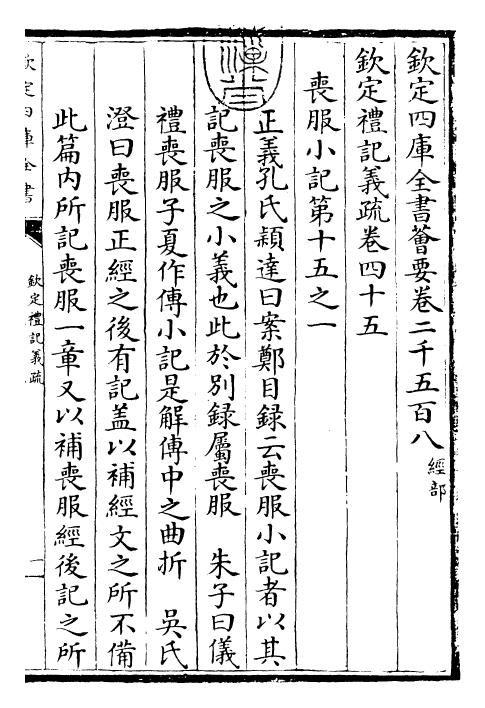 欽定四庫全書薈要卷二千五百八 經部
欽定禮記義疏卷四十五
喪服小記第十五之一
正義孔氏穎達曰案鄭目録云喪服小記者以其
記喪服之小義也此於別録屬喪服 朱子曰儀
禮喪服子夏作傳小記是解傳中之曲折 吳氏
澄曰喪服正經之後有記蓋以補經文之所不備
此篇內所記喪服一章又以補喪服經後記之所
欽定四庫全書
欽定禮記義疏